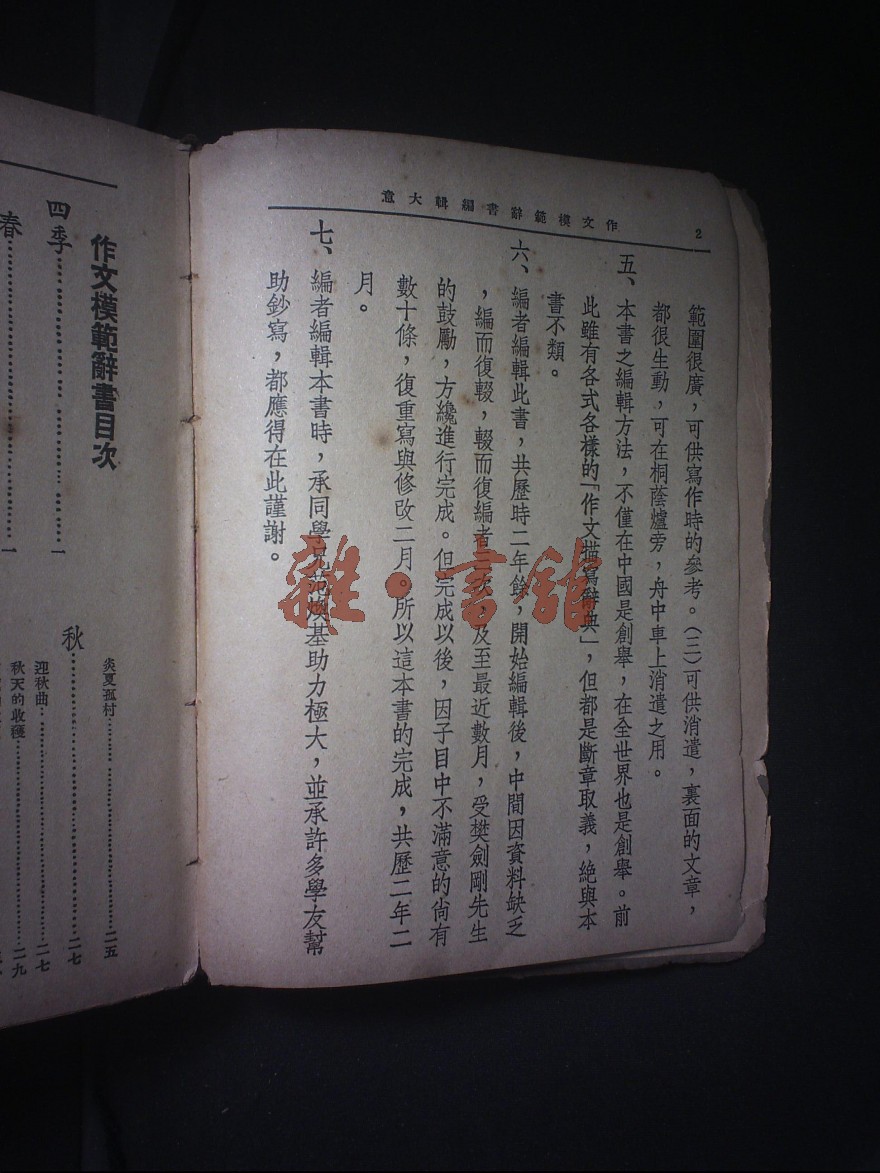 2
作文模範辭書編輯大意
範圍很廣，可供寫作時的參考。（三）可供消遣，裏面的文章，
都很生動，可在桐蔭爐旁，舟中車上消遣之用。
五、本書之編輯方法，不僅在中國是創舉，在全世界也是創舉。前
此雖有各式各樣的「作文描寫辭典」，但都是斷章取義，絶與本
書不類。
六、編者編輯此書，共歷時二年餘，開始編輯後，中間因資料缺乏
，編而復輟，輟而復編者三次，及至最近數月，受樊劍剛先生
的鼓勵，方纔進行完成。但完成以後，因子目中不滿意的尙有
數十條，復重寫與修改二月。所以這本書的完成，共歷二年二
月。
七、編者編輯本書時，承同學兄煥基助力極大，並承許多學友幫
助鈔寫，都應得在此謹謝。
作文模範辭書目次
四季……一
春……一
炎夏孤村……二五
秋……二七
迎秋曲……二七
秋天的收穫……二九
雜·書舘